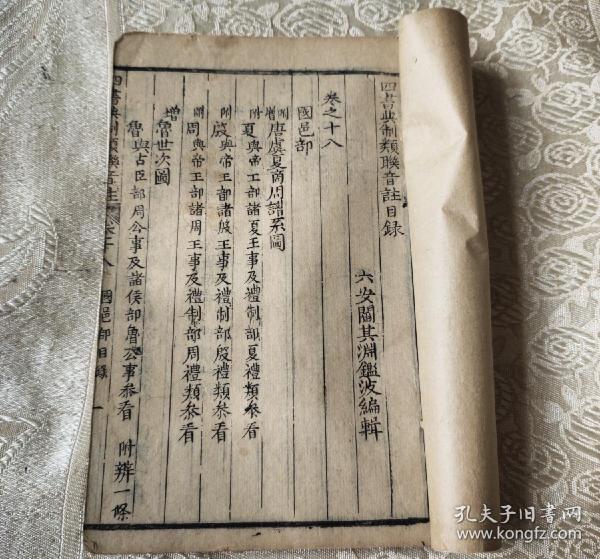 四書典制類聯音註目録
六安閻其淵鑑波編輯
卷之十八
國邑部
附增唐虞夏商周譜系圖
附夏與帝王部諸夏王事及禮制部夏禮類叅看
附殷與帝王部諸殷王事及禮制部殷禮類叅看
附周與帝王部諸周王事及禮制部周禮類叅看
增魯世次圖
魯與古臣部周公事及諸侯部魯公事叅看 附辨一條
四書典制類聯音註 卷十八 國邑部目錄 一
孔夫子旧书网
www.kongfz.com